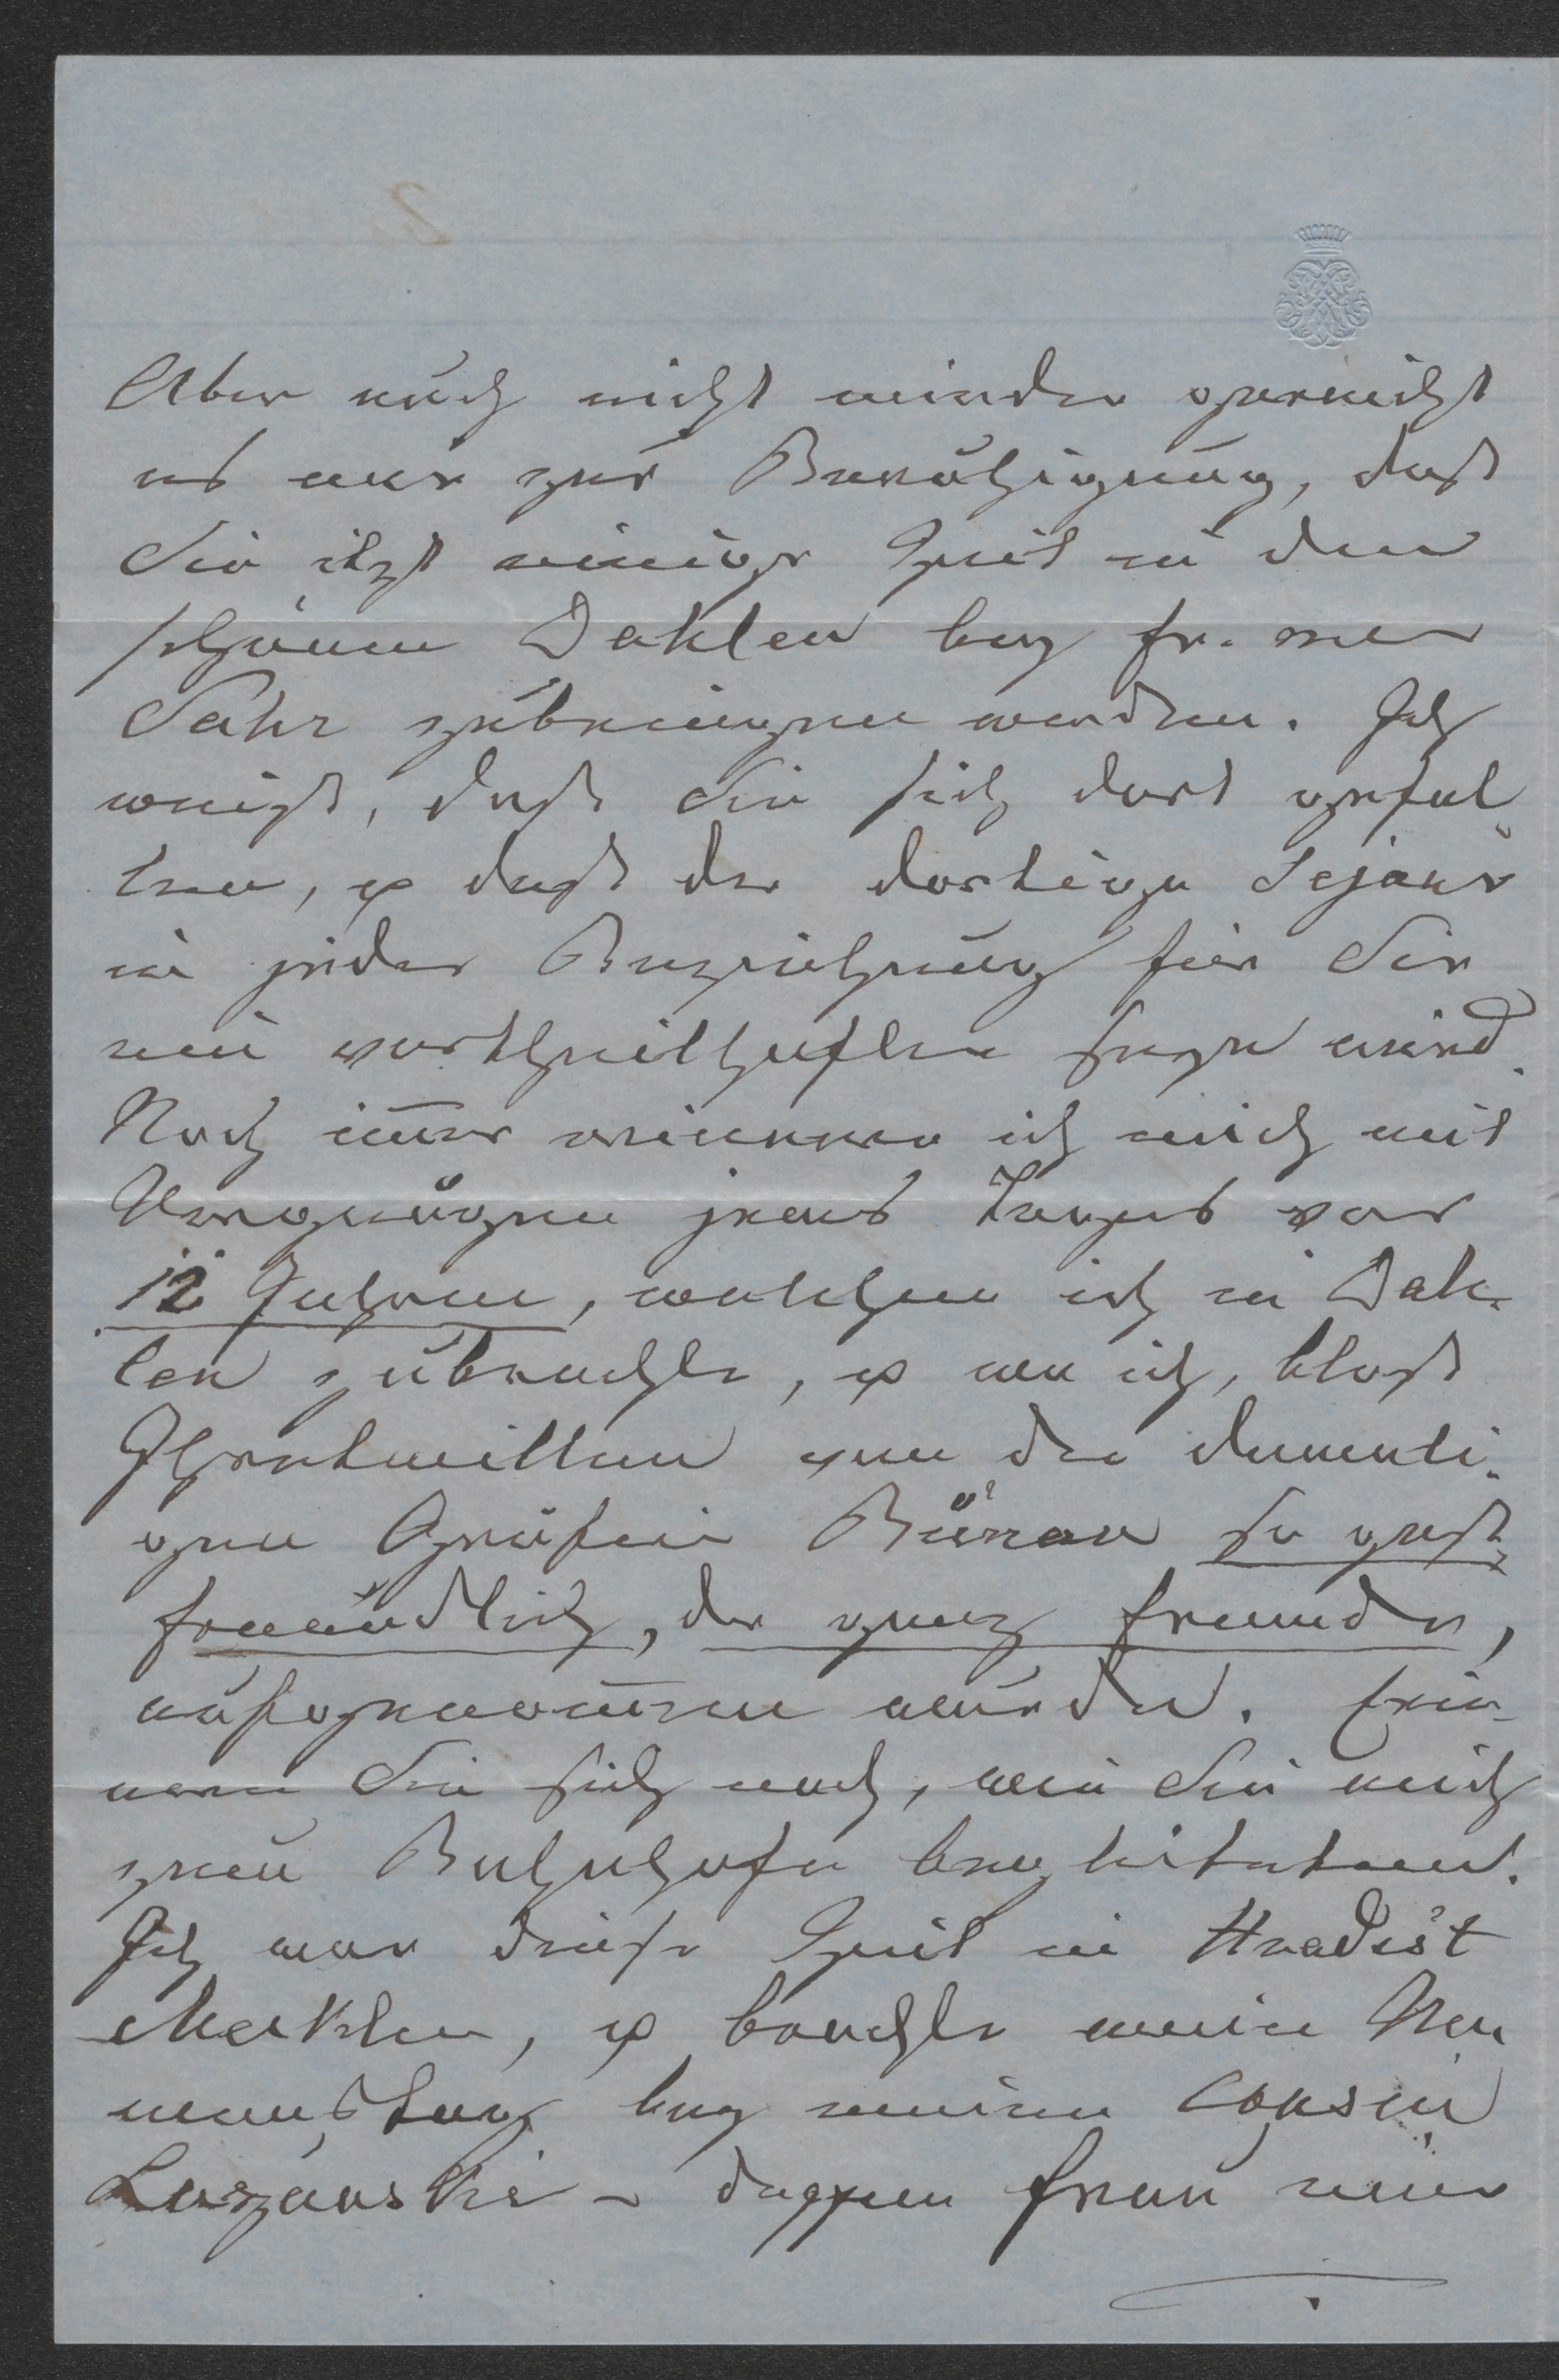 Aber auch nicht minder gereicht
es mir zur Beruhigung, daß
Sie itzt einige Zeit in dem
schönen Dahlen bey Fr. von
Sahr zubringen werden. Ich
weiß, daß Sie sich dort gefal
len, & daß der dortige Sejour
in jeder Beziehung für Sie
ein vortheilhafter seyn wird.
Noch im̄er erinnere ich mich mit
Vergnügen jenes Tages vor
12 Jahren, welchen ich in Dah-
len zubrachte, & wo ich, bloß
Ihretwillen von der damali-
gen Gräfin Bünau so gast-
freundlich, der ganz fremde,
aufgenom̄en wurde. Erin-
nern Sie sich noch, wie Sie mich
zum Bahnhofe begleiteten.
Ich war diese Zeit in Hradišt
, & brachte meinen Na
menstag bey meinem Cousin
Lazansky - dessen Frau eine